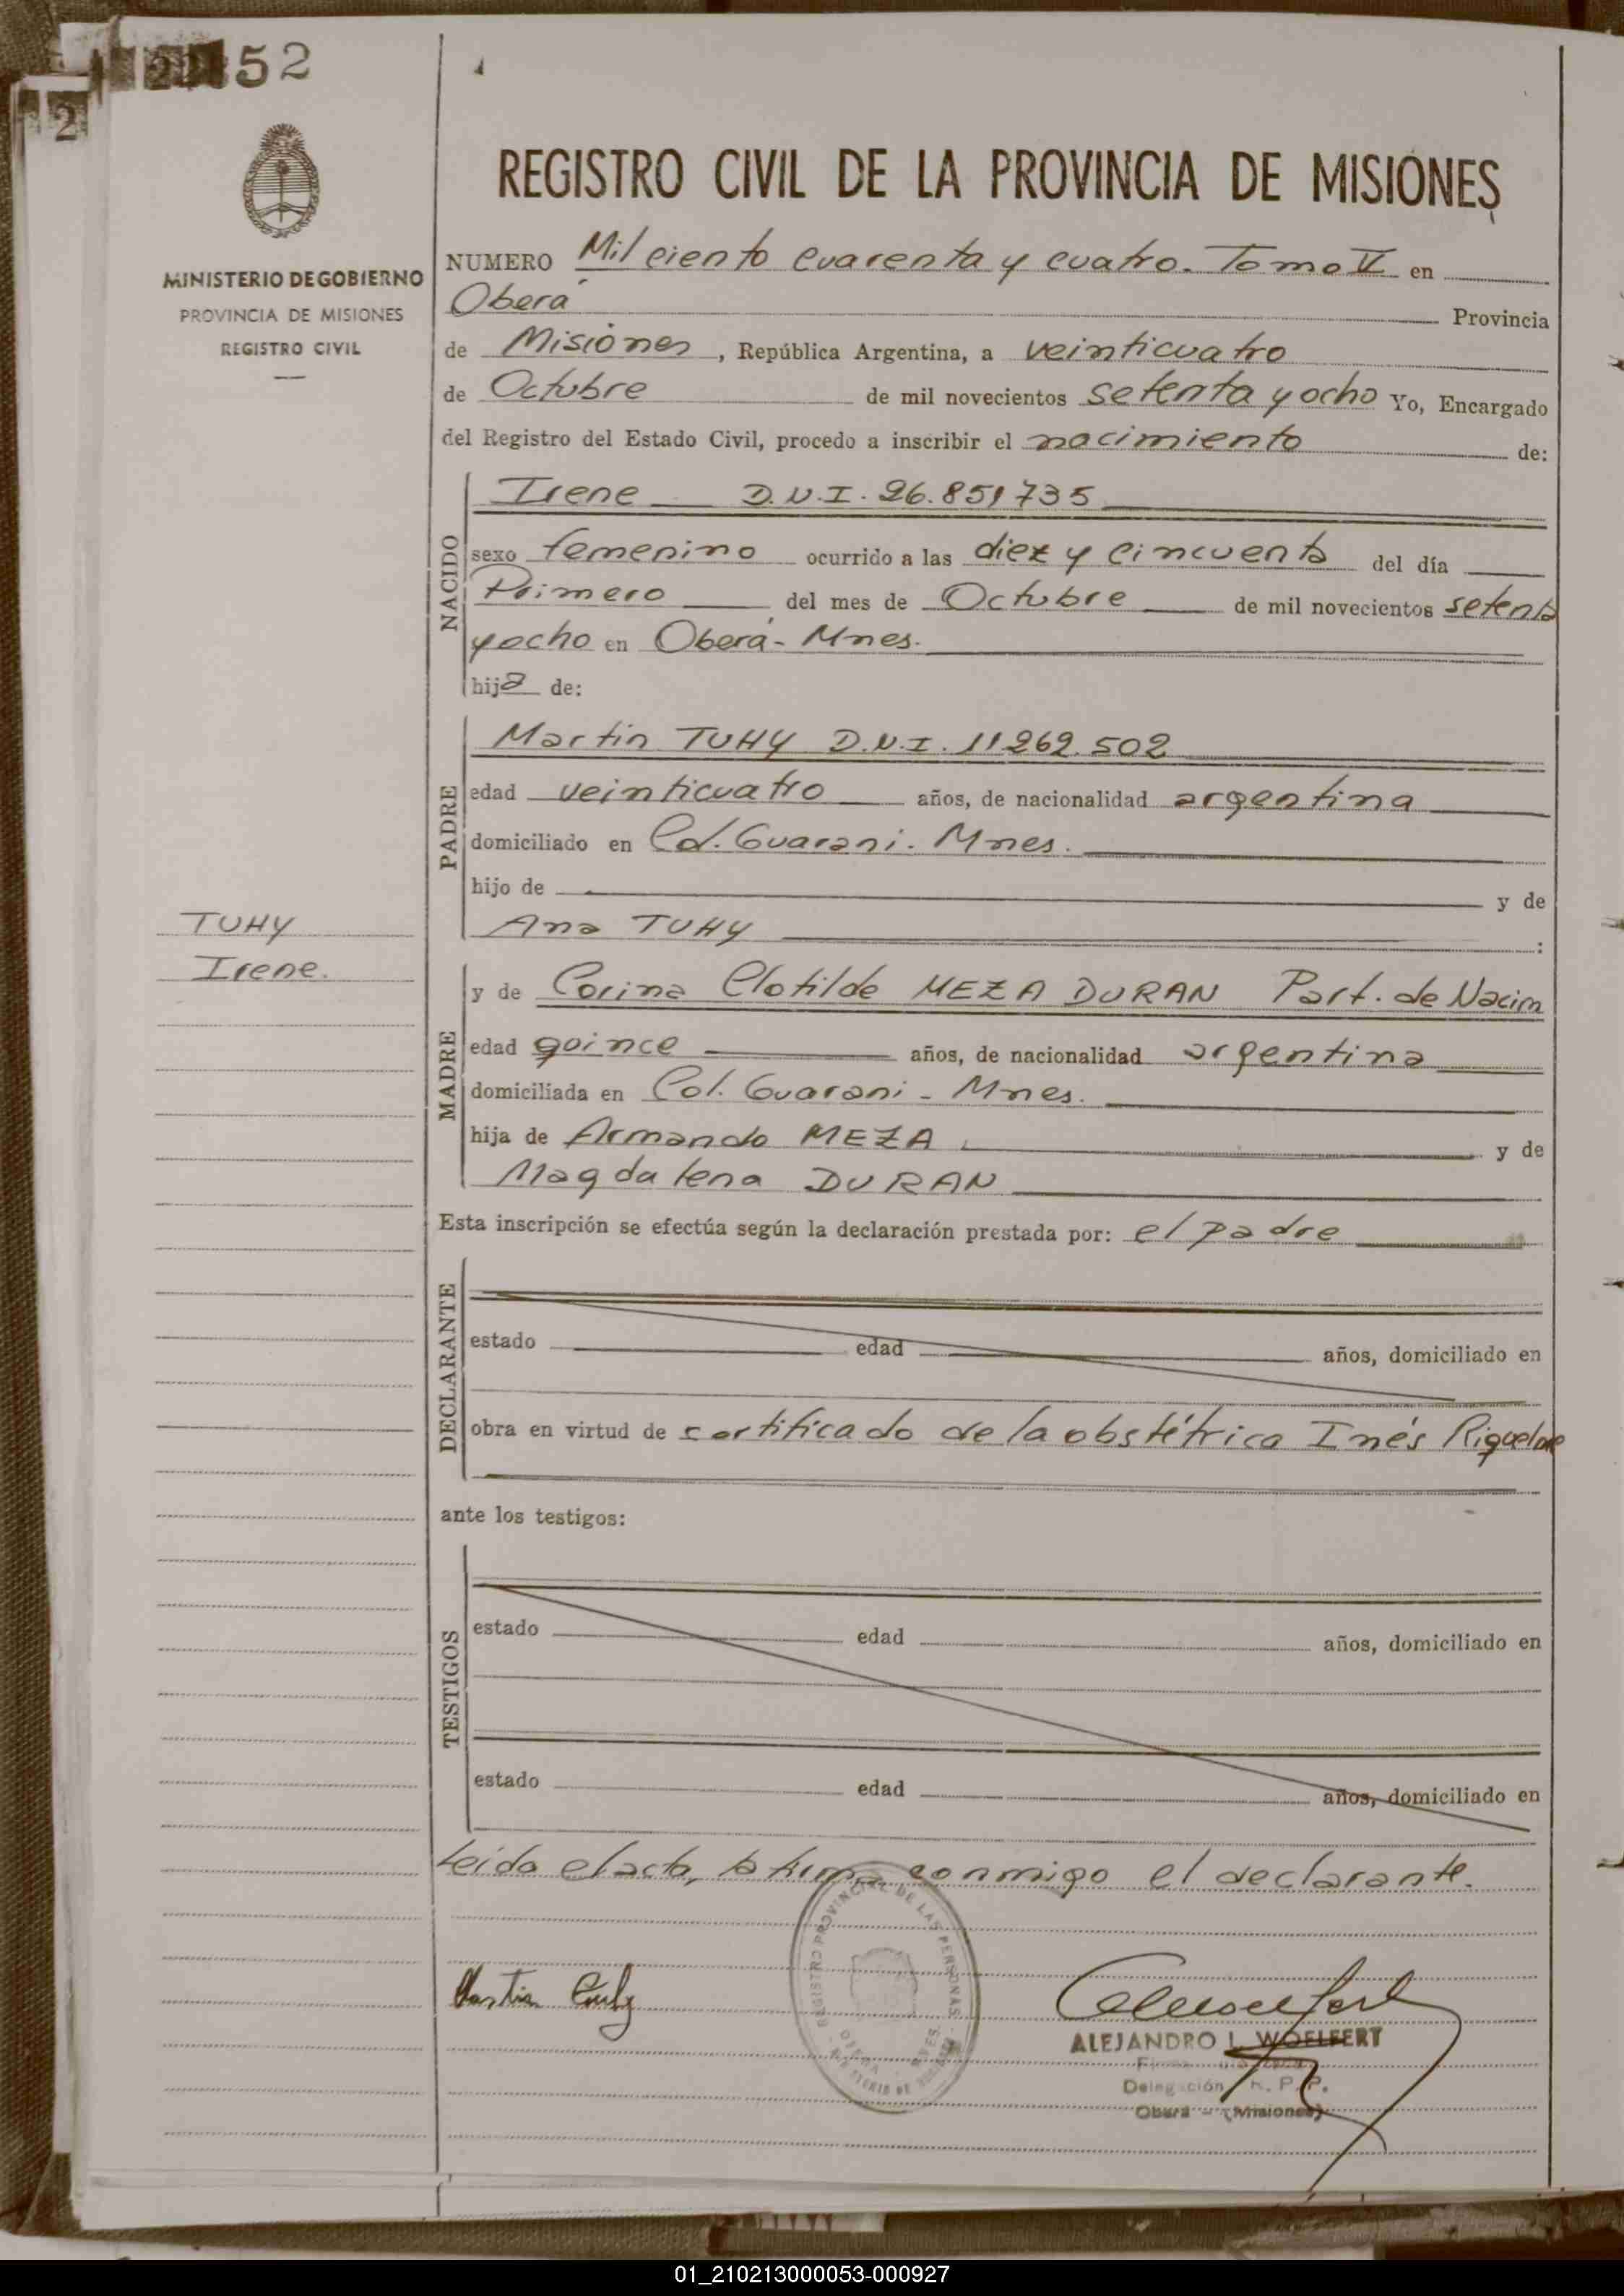 52
2
MINISTERIO DE GOBIERNO
PROVINCIA DE MISIONES
REGISTRO CIVIL
REGISTRO CIVIL DE LA PROVINCIA DE MISIONES
NUMERO Mil ciento cuarenta y cuatro. Tomo V en
Oberá Provincia
de Misiones, República Argentina, a veinticuatro
de Octubre de mil novecientos setenta y ocho Yo, Encargado
del Registro del Estado Civil, procedo a inscribir el nacimiento de:
NACIDO
Irene D.N.I. 26.851735
sexo femenino ocurrido a las diez y cincuenta del día
Primero del mes de Octubre de mil novecientos setenta
y ocho en Oberá - Mnes.
hija de:
PADRE
Martin TUHY D.N.I. 11262.502
edad veinticuatro años, de nacionalidad argentina
domiciliado en Col. Guarani. Mnes.
hijo de y de
Ana TUHY :
TUHY
Irene.
MADRE
y de Corina Clotilde MEZA DURAN Part. de Nacim
edad quince años, de nacionalidad argentina
domiciliada en Col. Guarani - Mnes.
hija de Armando MEZA y de
Magdalena DURAN
Esta inscripción se efectúa según la declaración prestada por: el padre
DECLARANTE
estado edad años, domiciliado en
obra en virtud de certificado de la obstétrica Inés Riquelme
ante los testigos:
TESTIGOS
estado edad años, domiciliado en
estado edad años, domiciliado en
Leida el acta, la firma conmigo el declarante.
REGISTRO PROVINCIAL DE LAS PERSONAS
Martin Tuhy
ALEJANDRO L. WOELFERT
Delegación R. P. P.
Oberá - (Misiones)
01_210213000053-000927